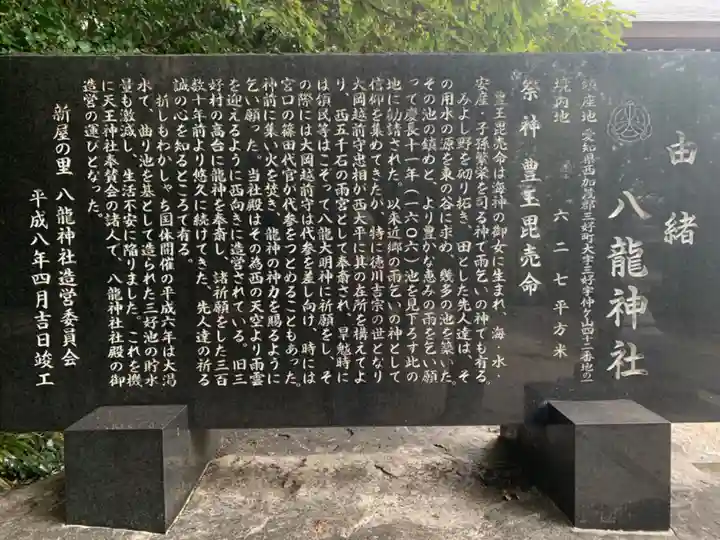 由緒
八龍神社
鎮座地 愛知県西加茂郡三好町大字三好字仲ヶ山四十二番地の一
境内地 六二七平方米
祭神 豊玉毘売命
豊玉毘売命は海神の御女に生まれ、海・水・
安産・子孫繁栄を司る神で雨乞いの神でも有る。
みよし野を切り拓き、田とした先人達は、そ
の用水の源を東の谷に求め、幾多の池を築いた。
その池の鎮めと、より豊かな恵みの雨を乞い願
って慶長十一年(一六〇六)池を見下ろす此の
地に勧請された。以来近郷の雨乞いの神として
信仰を集めてきたが、特に徳川吉宗の世となり
大岡越前守忠相が西大平に其の在所を構えてよ
り、西五千石の雨宮として奉斎され、旱魃時に
は領民等はこぞって八龍大明神に祈願をし、そ
の際には大岡越前守は代参を差し向け、時には
宮口の篠田代官が代参をつとめることもあった。
神前に集い火を焚き、龍神の神力を賜るように
乞い願った。当社殿はその為西の天空より雨雲
を迎えるように西向きに造営されている。旧三
好村の高台に龍神を奉斎し、諸祈願をした三百
数十年前より悠久に続けてきた、先人達の祈る
誠の心を知るところで有る。
折しもわかしゃち国体開催の平成六年は大渇
水で、曲り池を基として造られた三好池の貯水
量も激減し、生活不安に陥りました。これを機
に天王神社奉賛会の諸人で、八龍神社社殿の御
造営の運びとなった。
新屋の里 八龍神社造営委員会
平成八年四月吉日竣工